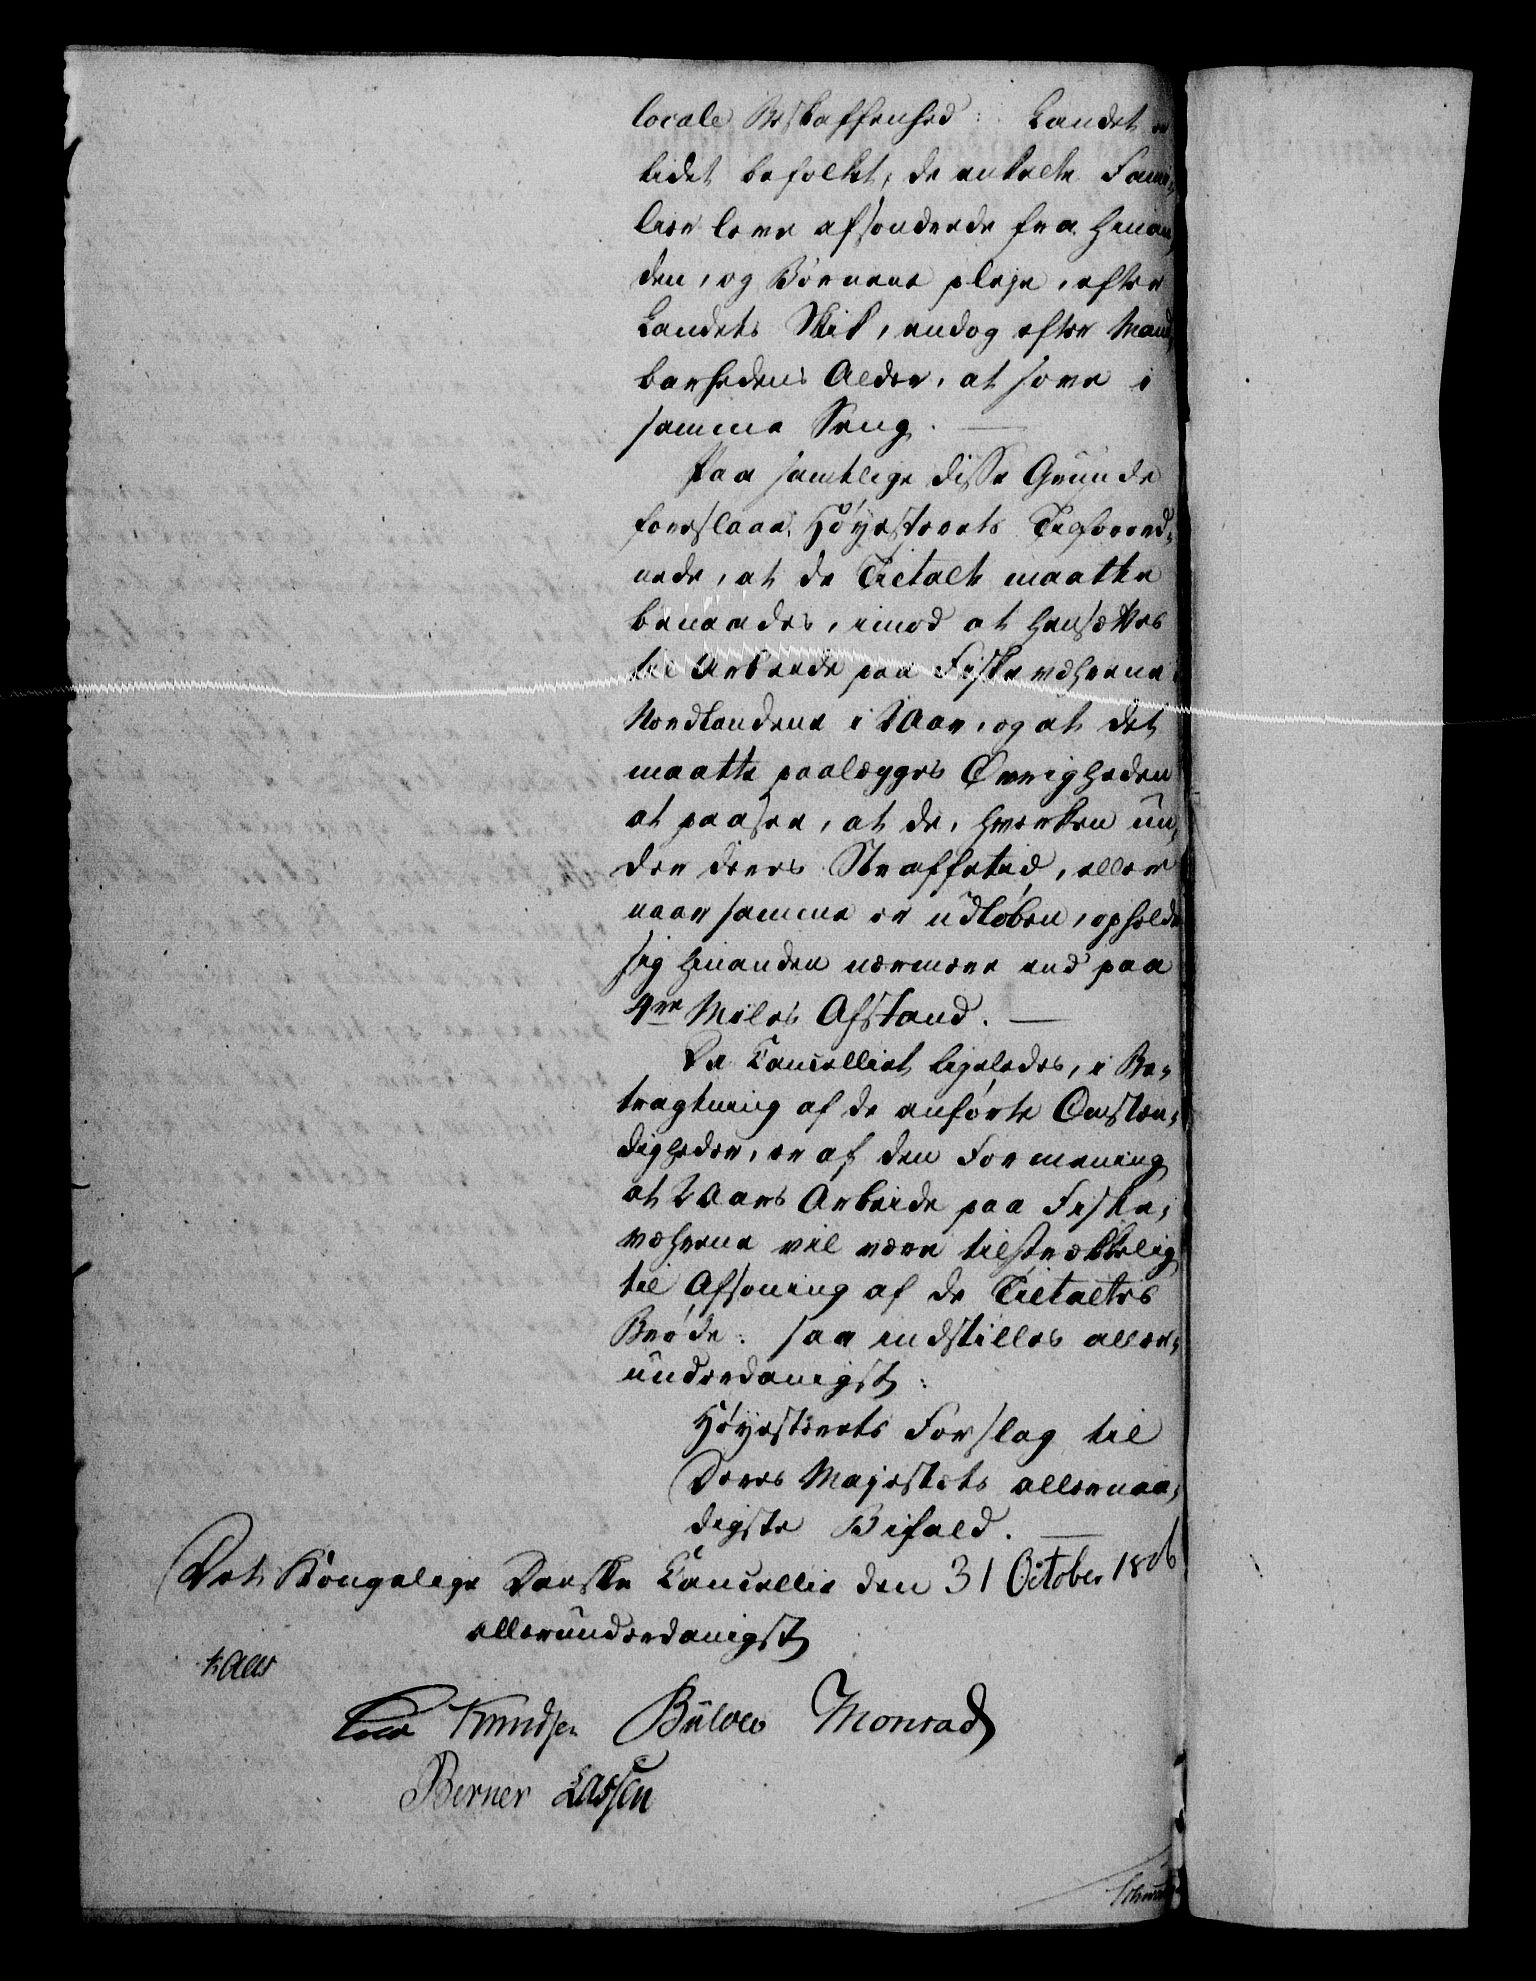 locale Beskaffenhed: Landet er
lidet befolket, de enkelte Fami-
lier leve afsondrede fra hinan-
den, og Börnene pleje, efter
Landets Skik, endog efter Mand-
barhedens Alder, at sove i
samme Seng. —
Paa samtlige disse Grunde
foreslaae Höyesterets Tilforord-
nede, at de Tiltalte maatte
benaades, imod at hensættes
til Arbeide paa Fiskeværene i
Nordlandene i 2 Aar, og at det
maatte paalægges Øvrigheden
at paasee, at de, hverken un-
der deres Straffetid, eller
naar samme er udlöben, opholde
sig hinanden nærmere end paa
4re Miles Afstand. —
Da Cancelliet ligeledes, i Be-
tragtning af de anförte Omstæn-
digheder, er af den Formening
at 2 Aars Arbeide paa Fiske-
værene vil være tilstrækkelig
til Afsoning af de Tiltaltes
Bröde: saa indstilles aller-
underdanigst:
Höyesterets Forslag til
Deres Majestets allernaa-
digste Bifald. —
Det Kongelige Danske Cancellie den 31 October 1806
allerunderdanigst
Kaas
Knudsen Bülow Monrad
Berner Lassen